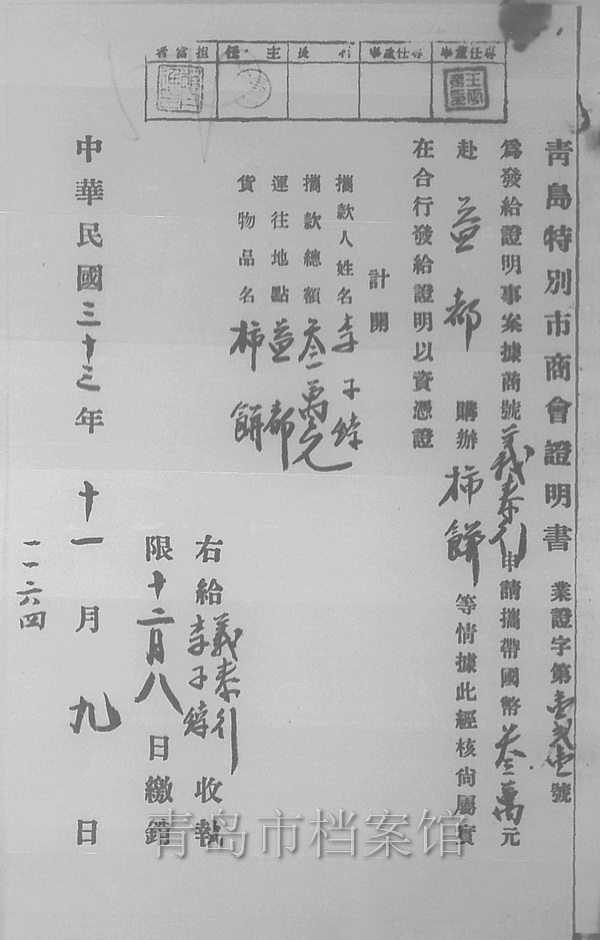 專任董事 專任董事 行長 主任 擔當者
青島特別市商會證明書 業證字第 號
爲發給證明事案據商號義泰行申請攜帶國幣叁萬元
赴益都購辦柿餅等情據此經核尚屬實
在合行發給證明以資憑證
計開
攜款人姓名李子
攜款總額叁萬元
運往地點益都
貨物品名柿餅
右給義泰行李子 收執
限十二月八日繳銷
中華民國三十三年十一月九日
一一六四
青岛市档案馆